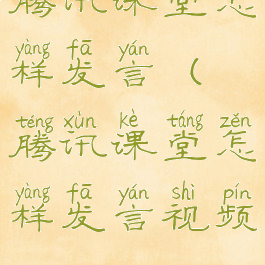 腾讯课堂怎
yàng fā yán
样发言（
téng xùn kè táng zěn
腾讯课堂怎
yàng fā yán shì pín
样发言视频